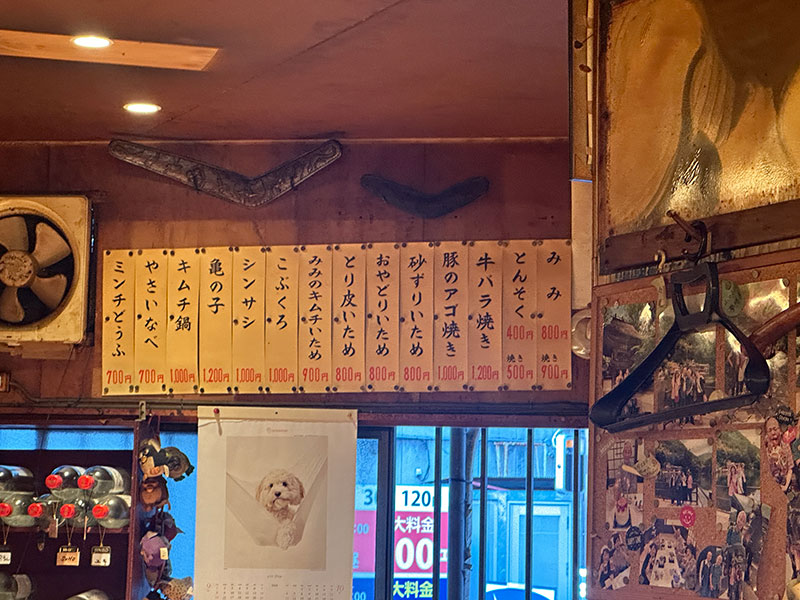 みみ 800円
焼き 900円
とんそく 400円
焼き 500円
牛バラ焼き 1,200円
豚のアゴ焼き 1,000円
砂ずりいため 800円
おやどりいため 800円
とり皮いため 800円
みみのキムチいため 900円
こぶくろ 1,000円
シンサシ 1,000円
亀の子 1,200円
キムチ鍋 1,000円
やさいなべ 700円
ミンチどうふ 700円
120
大料金
00
大料金